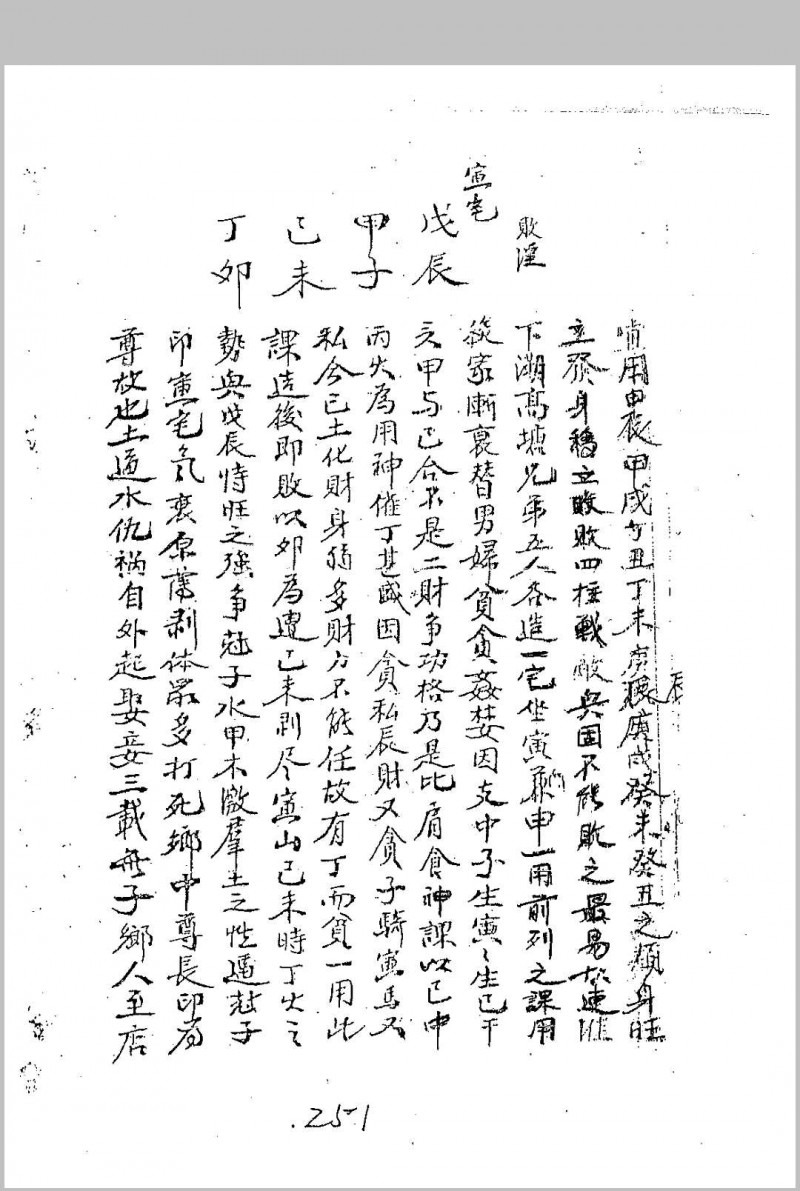 用甲辰甲戌丁丑丁未庚辰庚戌癸未癸丑之類身旺
立發身稳立敗四柱戰敵與固不能敗之最易
下湖髙塘兄弟五人各造一宅坐寅申一用前列之課用
後家漸衰替男婦貧貪姦婪因支中子生寅〻生巳干
甲与己合不是二財争功格乃是比肩食神課以巳中
丙火為用神催丁甚盛因貪私辰財又貪子騎寅馬又
私合己土化財身弱多財力不能任故有丁而貧一用此
課造後即敗以卯為遭己未剥尽寅山己未時丁火之
勢與戊辰恃旺之強争尅子水甲木激羣土之性逼尅子
印寅宅氣衰原薄剥体眾多打死鄉中尊長印為
尊故也土逼水仇禍自外起娶妾三載無子鄉人至店
敗淫
寅宅
戊辰
甲子
己未
丁卯
.251